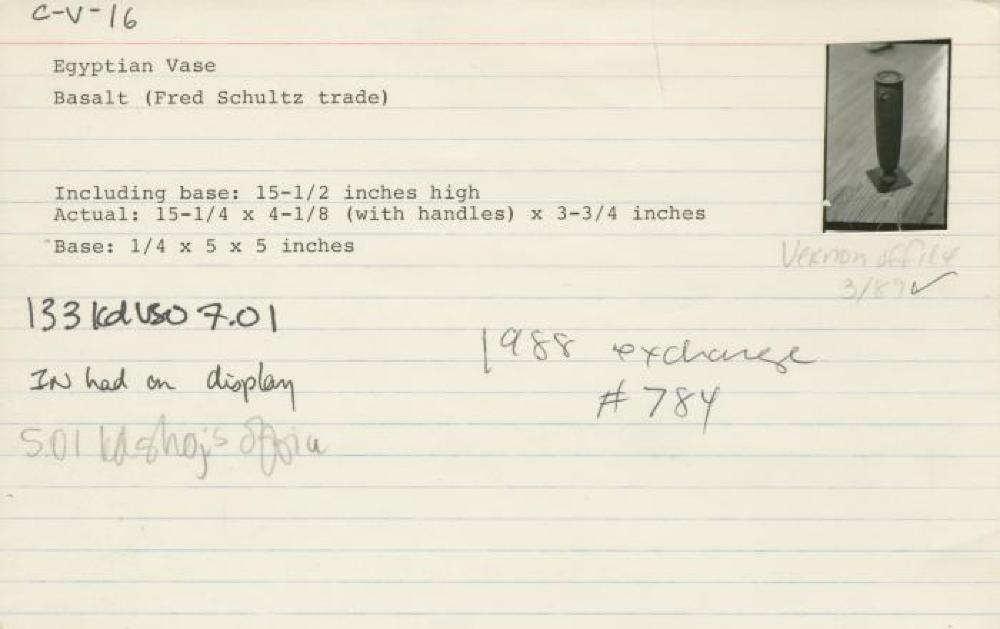 C-V-16
Egyptian Vase
Basalt (Fred Schultz trade)
Including base: 15-1/2 inches high
Actual: 15-1/4 x 4-1/8 (with handles) x 3-3/4 inches
Base: 1/4 x 5 x 5 inches
Vernon office
3/89 ✓
133 kd VSO 7.01
IN had on display
1988 exchange
# 784
5.01